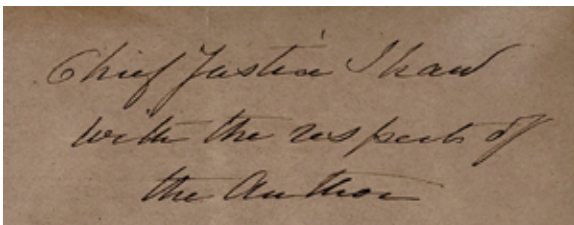 Chief Justice Shaw
with the respects of
the Author